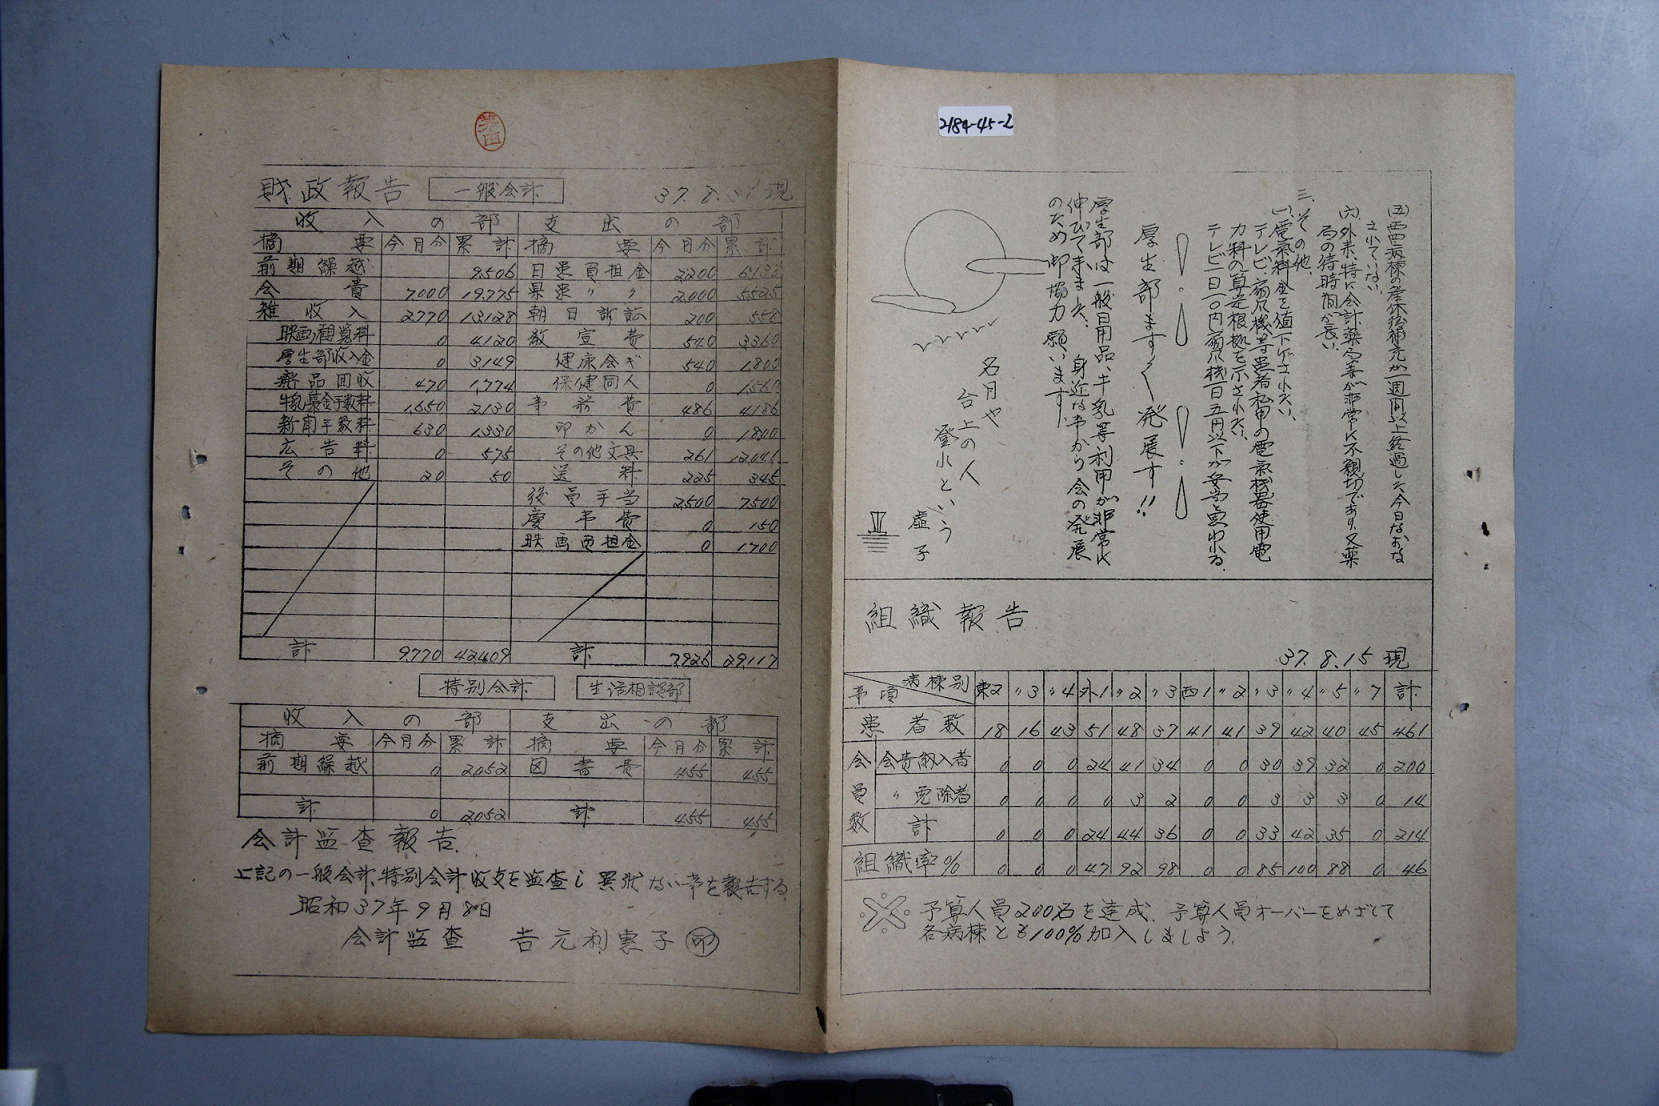 2184-45-2
(五)西四病棟の産休後補充が一週間以上経過した今日なおな
されていない
(六)外来、特に会計薬局妻が非常に不親切であり、又薬
局の待時間が長い
三、その他、
(一)電気料金を値下げされたい、
テレビ、扇風機等患者私用の電気機器使用電
力料の算定根拠を示されたい、
テレビ一日一〇円扇風機一日五円以下が妥当と思われる、
厚生部ます〱発展す!!
厚生部は一般日用品、牛乳等利用が非常に
伸びて来ました、身近な事から会の発展
のため御協力願います、
名月や
台上の人
登れという
虚子
組織報告
37.8.15 現
事項 病棟別 東2 〃3 〃4 外1 〃2 〃3 西1 〃2 〃3 〃4 〃5 〃7 計
患者数 18 16 43 51 48 37 41 41 39 42 40 45 461
会員数 会費納入者 0 0 0 24 41 34 0 0 30 39 32 0 200
〃免除者 0 0 0 0 3 2 0 0 3 3 3 0 14
計 0 0 0 24 44 36 0 0 33 42 35 0 214
組織率% 0 0 0 47 92 98 0 0 85 100 88 0 46
※予算人員200名を達成、予算人員オーバーをめざして
各病棟とも100%加入しましよう、
財政報告 一般会計 37.8.31 現
収入の部 支出の部
摘要 今月分 累計 摘要 今月分 累計
前期繰越 9,506 日患負担金 2,200
会費 7,000 19,775 県患〃〃 2,000 5,525
雑収入 2,770 13,128 朝日訴訟 200 550
映画観覧料 0 4,120 教宣費 540 3,360
厚生部収入金 0 3,149 健康会ギ 540 1,800
廃品回収 470 1,774 保健同人 0 1,560
牛乳募金手数料 1,650 2,130 事務費 486 4,186
新聞手数料 630 1,330 印かん 0 1,800
広告料 0 575 その他文具 261
その他 20 50 送料 225 345
役員手当 2,500 7,500
慶弔費 0 150
映画負担金 0 1,700
計 9,770 42,409 計 7,926 29,117
特別会計 生活相談部
収入の部 支出の部
摘要 今月分 累計 摘要 今月分 累計
前期繰越 0 2,052 図書費 455 455
計 0 2,052 計 455 455
会計監査報告
上記の一般会計、特別会計收支を監査し異状ない事を報告する
昭和37年9月8日
会計監査 吉元利恵子 印